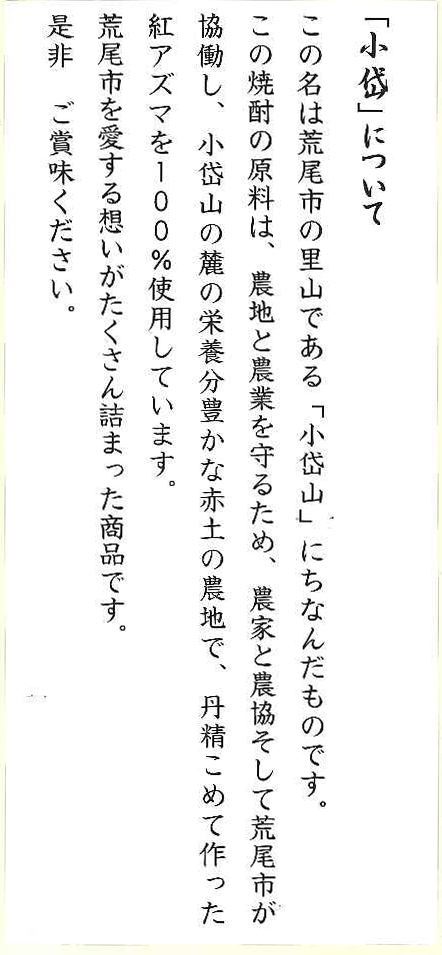 「小岱」について
この名は荒尾市の里山である「小岱山」にちなんだものです。
この焼酎の原料は、農地と農業を守るため、農家と農協そして荒尾市が
協働し、小岱山の麓の栄養分豊かな赤土の農地で、丹精こめて作った
紅アズマを１００％使用しています。
荒尾市を愛する想いがたくさん詰まった商品です。
是非　ご賞味ください。